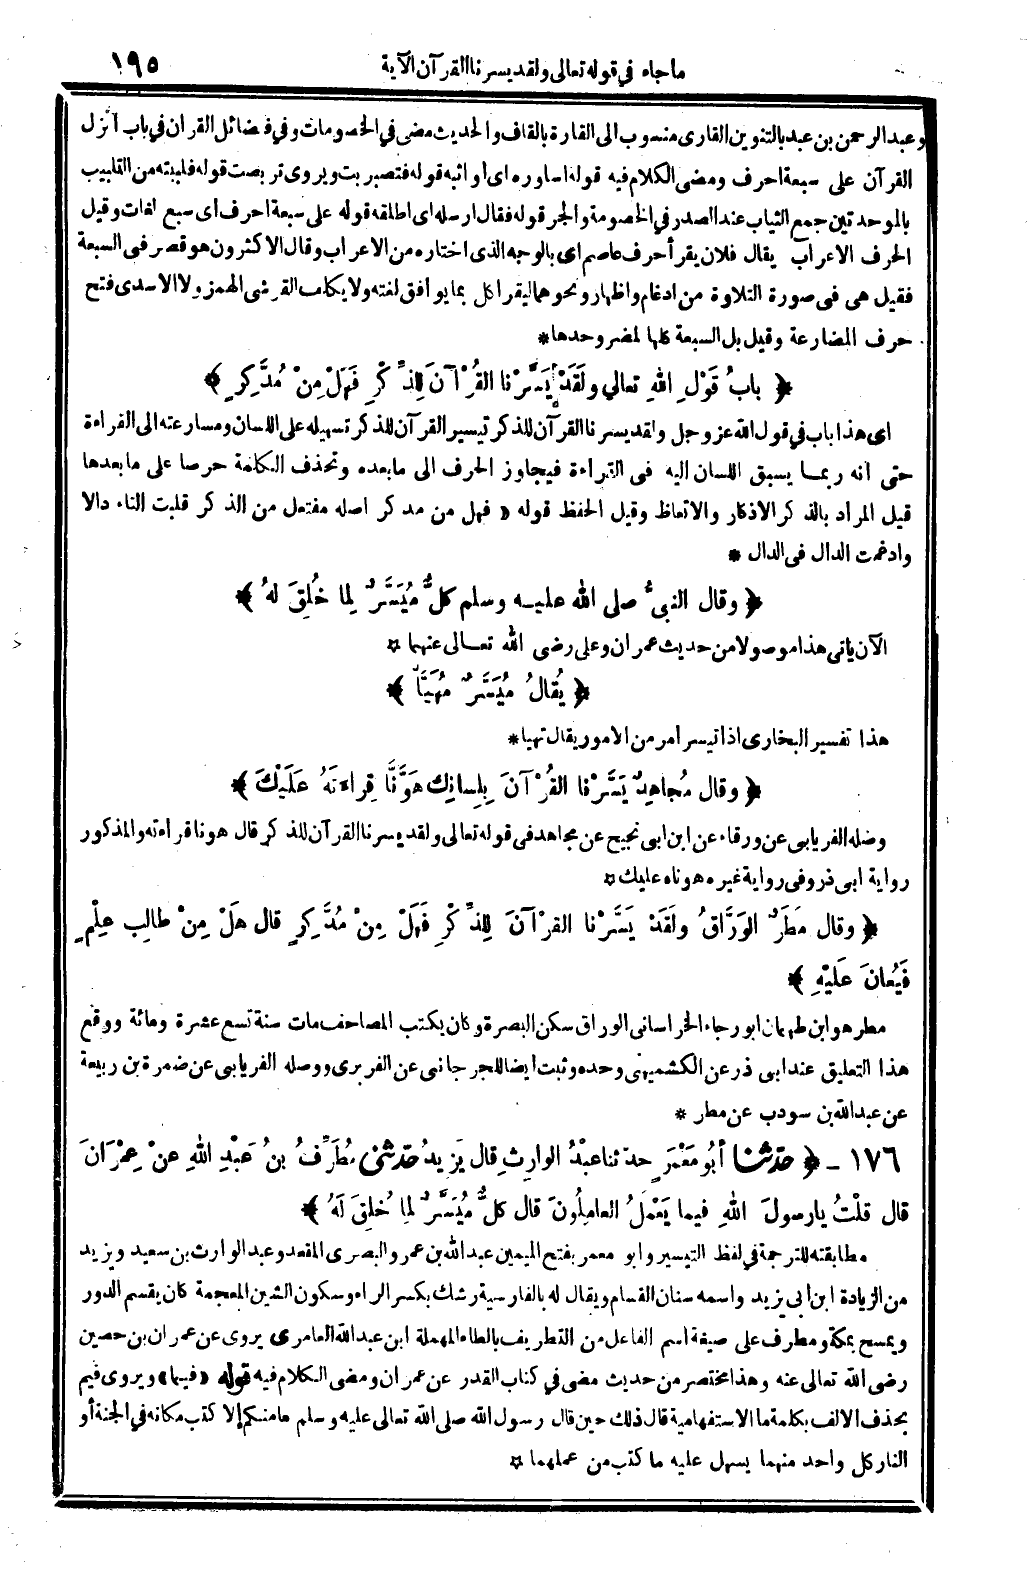 ماجاء في قوله تعالى ولقد يسرنا القرآن الآية ١٩٥
وعبد الرحمن بن عبد بالتنوين القارى منسوب الى القارة بالقاف والحديث مضى في الخصومات وفي فضائل القران في باب أنزل
القرآن على سبعة احرف ومضى الكلام فيه قوله اساوره اى اواثبه قوله فتصبرت ويروى تربصت قوله فلببته من التلبيب
بالموحدتين جمع الثياب عند الصدر في الخصومة والجر قوله فقال ارسله اى اطلقه قوله على سبعة احرف اى سبع لغات وقيل
الحرف الاعراب يقال فلان يقرأ حرف عاصم اى بالوجه الذى اختاره من الاعراب وقال الاكثرون هو قصر فى السبعة
فقيل هى فى صورة التلاوة من ادغام واظهار ونحوهما ليقرا كل بما يوافق لغته ولا يكلف القرشى الهمز ولا الاسدى فتح
حرف المضارعة وقيل بل السبعة كلها لمضر وحدها *
﴿ بابُ قَوْلِ اللهِ تعالي ولَقَدْ يَسَّرْنا القُرْآنَ لِلذِّكْرِ فَهَلْ مِنْ مُدَّكِرٍ ﴾
اى هذا باب في قول الله عز وجل ولقد يسرنا القرآن للذكر تيسير القرآن للذكر تسهيله على اللسان ومسارعته الى القراءة
حتى انه ربما يسبق اللسان اليه فى القراءة فيجاوز الحرف الى مابعده وتحذف الكلمة حرصا على مابعدها
قيل المراد بالذكر الاذكار والاتعاظ وقيل الحفظ قوله « فهل من مدكر اصله مفتعل من الذكر قلبت التاء دالا
وادغمت الدال فى الدال *
﴿ وقال النبىُّ صلى الله عليه وسلم كلٌّ مُيَسَّرٌ لِما خُلِقَ لهُ ﴾
الآن ياتى هذا موصولا من حديث عمران وعلى رضى الله تعالى عنهما *
﴿ يُقالُ مُيَسَّرٌ مُهَيَّأٌ ﴾
هذا تفسير البخارى اذا تيسر امر من الامور يقال تهيا *
﴿ وقال مُجاهِدٌ يَسَّرْنا القُرْآنَ بِلِسانِكَ هَوَّنَّا قِراءَتَهُ عَلَيْكَ ﴾
وصله الفريابى عن ورقاء عن ابن ابى نجيح عن مجاهد فى قوله تعالى ولقد يسرنا القرآن للذكر قال هونا قراءته والمذكور
رواية ابى ذر وفى رواية غيره هوناه عليك *
﴿ وقال مَطَرٌ الوَرَّاقُ ولَقَدْ يَسَّرْنا القرْآنَ لِلذِّكْرِ فَهَلْ مِنْ مُدَّكِرٍ قال هَلْ مِنْ طالِبِ عِلْمٍ
فَيُعانَ عَلَيْهِ ﴾
مطر هو ابن طهمان ابو رجاء الخراسانى الوراق سكن البصرة وكان يكتب المصاحف مات سنة تسع عشرة ومائة ووقع
هذا التعليق عند ابى ذر عن الكشميهنى وحده وثبت ايضا للجرجانى عن الفربرى ووصله الفريابى عن ضمرة بن ربيعة
عن عبدالله بن سودب عن مطر *
١٧٦ - ﴿ حَدَّثَنا أبُو مَعْمَرٍ حدثنا عبْدُ الوارِثِ قال يَزِيدُ حَدَّثَنِى مُطَرِّفُ بنُ عَبْدِ اللهِ عنْ عِمْرَانَ
قال قلْتُ يارسولَ اللهِ فيما يَعْمَلُ العامِلُونَ قال كلٌّ مُيَسَّرٌ لِمَا خُلِقَ لَهُ ﴾
مطابقته للترجمة في لفظ التيسير وابو معمر بفتح الميمين عبدالله بن عمرو البصرى المقعد وعبد الوارث بن سعيد ويزيد
من الزيادة ابن ابى يزيد واسمه سنان القسام ويقال له بالفارسية رشك بكسر الراء وسكون الشين المعجمة كان يقسم الدور
ويمسح بمكة ومطرف على صيغة اسم الفاعل من التطريف بالطاء المهملة ابن عبدالله العامرى يروى عن عمران بن حصين
رضى الله تعالى عنه وهذا مختصر من حديث مضى في كتاب القدر عن عمران ومضى الكلام فيه قوله «فيما» ويروى فيم
بحذف الالف بكلمة ما الاستفهامية قال ذلك حين قال رسول الله صلى الله تعالى عليه وسلم مامنكم إلا كتب مكانه في الجنة أو
النار كل واحد منهما يسهل عليه ما كتب من عملهما *